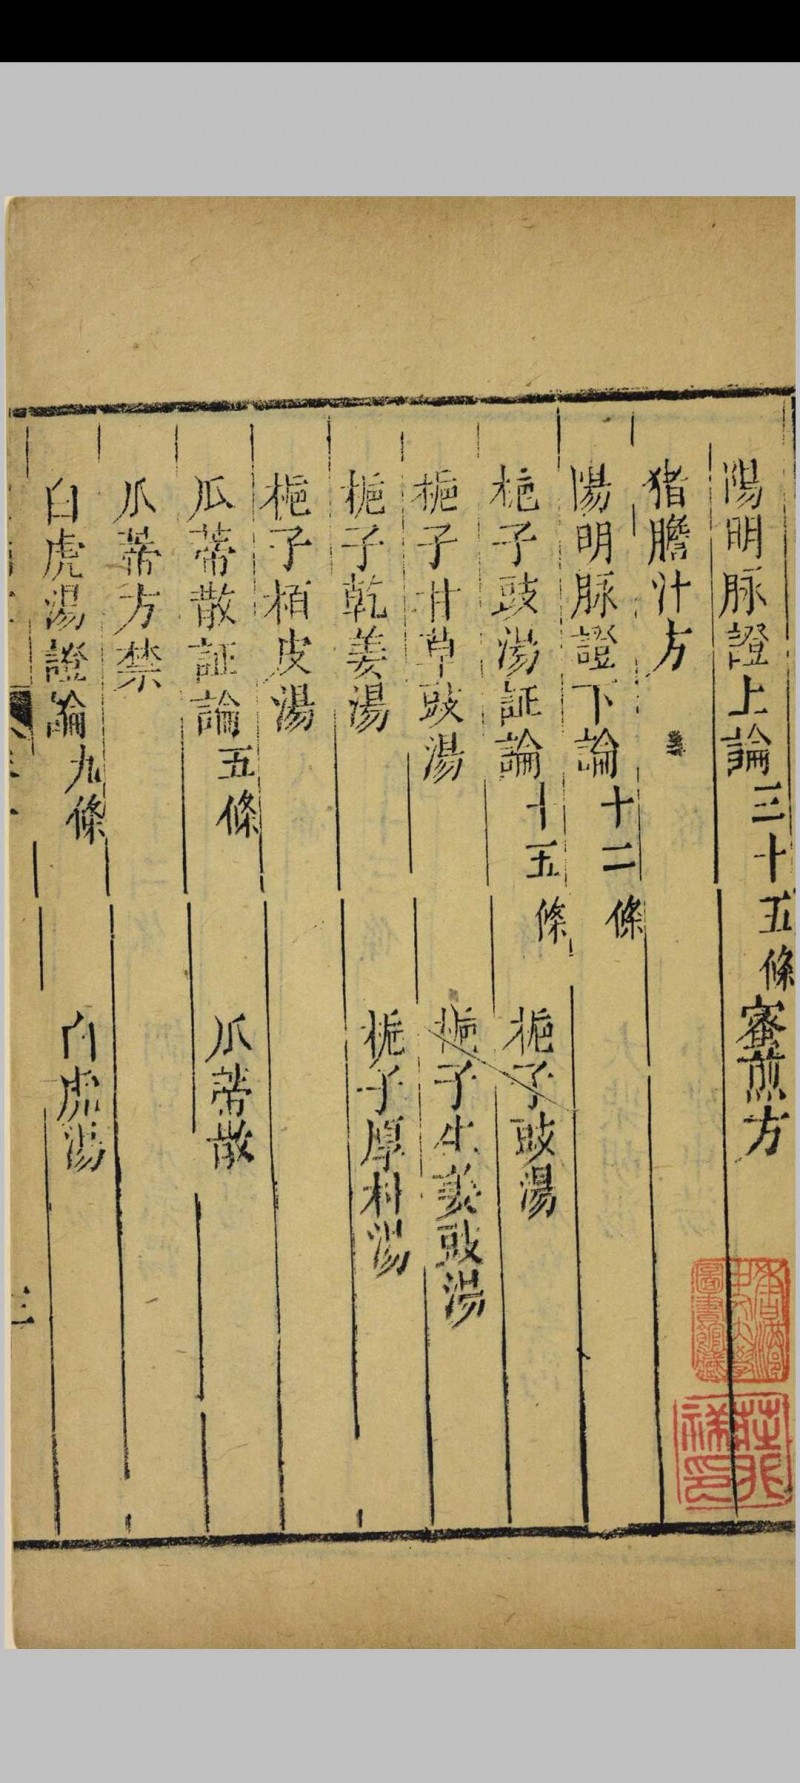 陽明脉證上論三十五條 蜜煎方
猪膽汁方
陽明脉證下論十二條
梔子豉湯証論十五條 梔子豉湯
梔子甘草豉湯 梔子生姜豉湯
梔子乾姜湯 梔子厚朴湯
梔子栢皮湯
瓜蒂散証論五條 瓜蒂散
瓜蒂方禁
白虎湯證論九條 白虎湯
三